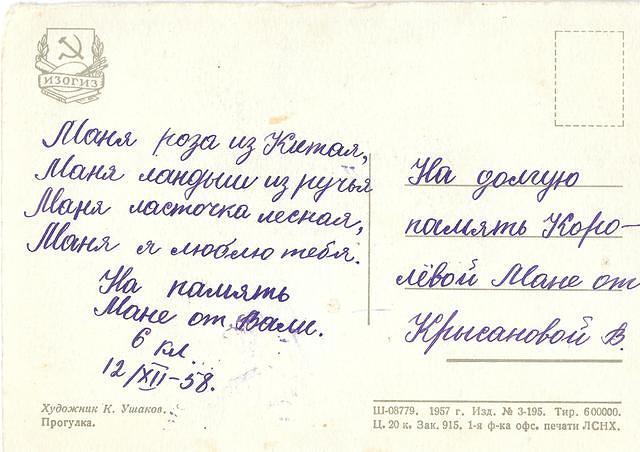 ИЗОГИЗ
Маня роза из Китая,
Маня ландыш из ручья
Маня ласточка лесная,
Маня я люблю тебя.
На память
Мане от Вали.
6 кл.
12/XII-58.
Художник К. Ушаков.
Прогулка.
На долгую
память Коро-
лёвой Мане от
Крысановой В.
Ш-08779. 1957 г. Изд. № 3-195. Тир. 600000.
Ц. 20 к. Зак. 915. 1-я ф-ка офс. печати ЛСНХ.